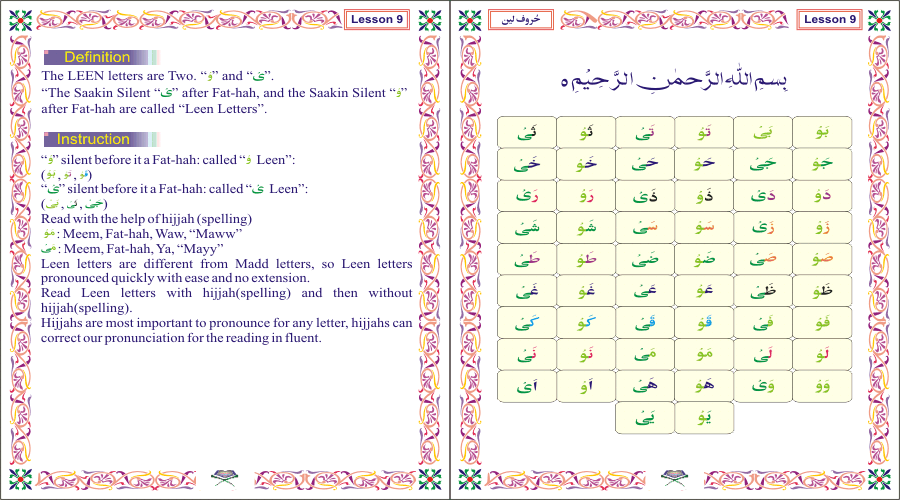 Lesson 9
Definition
The LEEN letters are Two. “وْ” and “یْ”.
“The Saakin Silent “یْ” after Fat-hah, and the Saakin Silent “وْ”
after Fat-hah are called “Leen Letters”.
Instruction
“وْ” silent before it a Fat-hah: called “وْ Leen”:
(بَوْ , تَوْ , قَوْ)
“یْ” silent before it a Fat-hah: called “یْ Leen”:
Read with the help of hijjah (spelling)
مَوْ : Meem, Fat-hah, Waw, “Maww”
مَیْ : Meem, Fat-hah, Ya, “Mayy”
Leen letters are different from Madd letters, so Leen letters
pronounced quickly with ease and no extension.
Read Leen letters with hijjah(spelling) and then without
hijjah(spelling).
Hijjahs are most important to pronounce for any letter, hijjahs can
correct our pronunciation for the reading in fluent.
حُروف لین
Lesson 9
بِسْمِ اللّٰهِ الرَّحْمٰنِ الرَّحِیْمِ ە
بَوْ بَیْ تَوْ تَیْ ثَوْ ثَیْ
جَوْ جَیْ حَوْ حَیْ خَوْ خَیْ
دَوْ دَیْ ذَوْ ذَیْ رَوْ رَیْ
زَوْ زَیْ سَوْ سَیْ شَوْ شَیْ
صَوْ صَیْ ضَوْ ضَیْ طَوْ طَیْ
ظَوْ ظَیْ عَوْ عَیْ غَوْ غَیْ
فَوْ فَیْ قَوْ قَیْ كَوْ كَیْ
لَوْ لَیْ مَوْ مَیْ نَوْ نَیْ
وَوْ وَیْ هَوْ هَیْ اَوْ اَیْ
یَوْ یَیْ